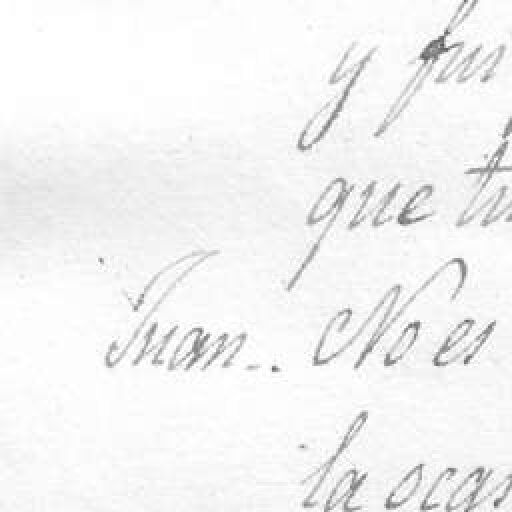 y fui
que tu
Juan.. No es
la ocas